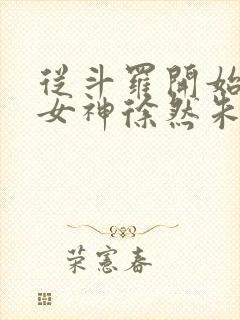 從斗羅開始
女神徐然朱
荣憲春